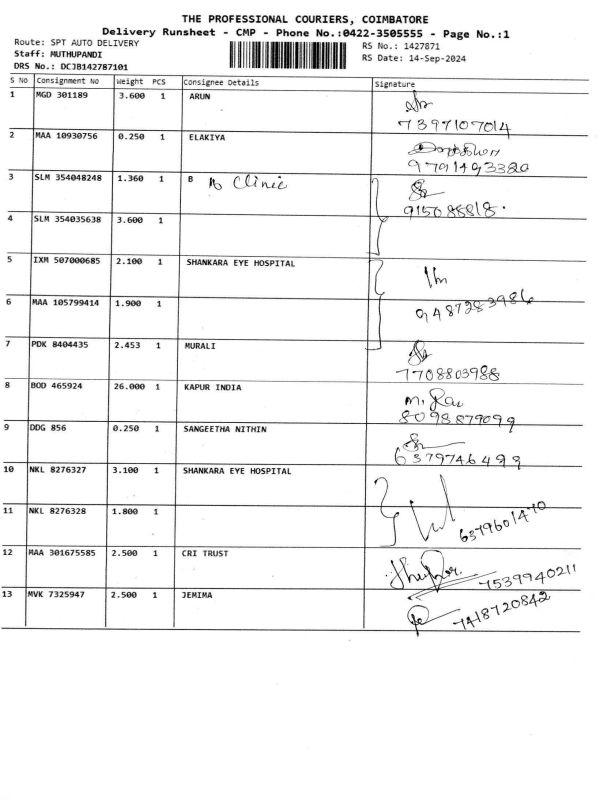 THE PROFESSIONAL COURIERS, COIMBATORE
Delivery Runsheet - CMP - Phone No.:0422-3505555 - Page No.:1
Route: SPT AUTO DELIVERY
Staff: MUTHUPANDI
DRS No.: DCJB142787101
RS No.: 1427871
RS Date: 14-Sep-2024
S No Consignment No Weight PCS Consignee Details Signature
1 MGD 301189 3.600 1 ARUN
7397107014
2 MAA 10930756 0.250 1 ELAKIYA
9791493380
3 SLM 354048248 1.360 1 B Clinic
915088818
4 SLM 354035638 3.600 1
5 IXM 507000685 2.100 1 SHANKARA EYE HOSPITAL
9487283986
6 MAA 105799414 1.900 1
7 PDK 8404435 2.453 1 MURALI
7708803988
8 BOD 465924 26.000 1 KAPUR INDIA
8098879099
9 DDG 856 0.250 1 SANGEETHA NITHIN
6379746499
10 NKL 8276327 3.100 1 SHANKARA EYE HOSPITAL
6379601470
11 NKL 8276328 1.800 1
12 MAA 301675585 2.500 1 CRI TRUST
7539940211
13 MVK 7325947 2.500 1 JEMIMA
7418720842